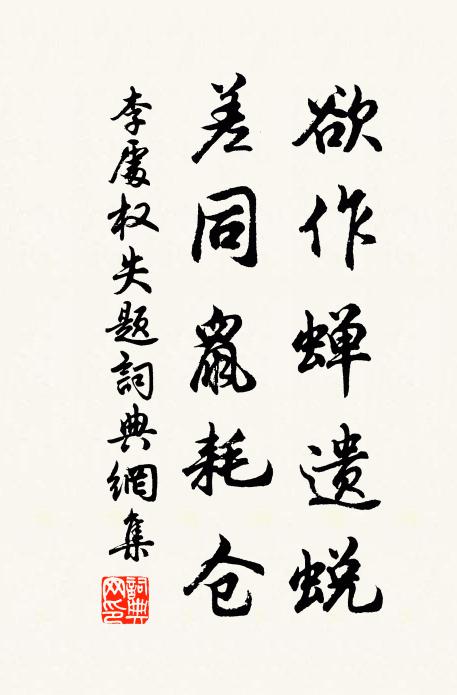 欲作蝉遗蜕
差同鼠耗仓
李處权失题詞典網集
詞典网印